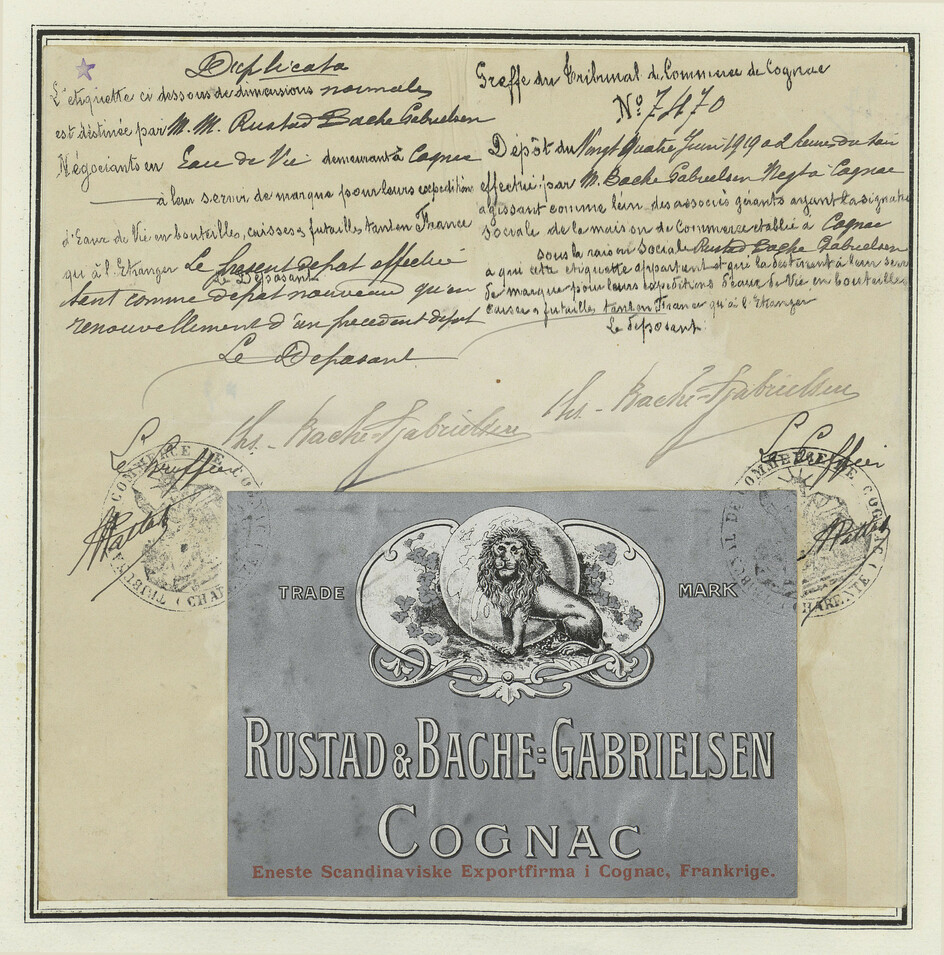 Duplicata
L'etiquette ci dessous de dimensions normales
est destinée par M. M. Rustad Bache Gabrielsen
Négociants en Eau de Vie demeurant à Cognac
à leur servir de marque pour leurs expéditions
d'Eaux de Vie en bouteilles, caisses & futailles tant en France
qu'à l'Etranger Le présent dépot effectué
Le Déposant
tant comme dépot nouveau qu'en
renouvellement d'un précédent dépot
Le Déposant
Ths. Bache-Gabrielsen
Le Greffier
Greffe du Tribunal de Commerce de Cognac
No 7470
Dépôt du Vingt quatre Juin 1919 a 2 heure du soir
effectué par M. Bache Gabrielsen Negt à Cognac
agissant comme l'un des associés gérants ayant la signature
sociale de la maison de Commerce établie à Cognac
sous la raison sociale Rustad Bache Gabrielsen
à qui cette etiquette appartient et qui la destinent à leur servir
de marque pour leurs expéditions d'eaux de Vie en bouteilles
caisses & futailles tant en France qu'à l'Etranger
Le déposant
Ths. Bache-Gabrielsen
Le Greffier
COMMERCE DE COGNAC
TRIBUNAL
COMMERCE DE COGNAC
TRIBUNAL DE
CHARENTE
TRADE MARK
RUSTAD & BACHE=GABRIELSEN
COGNAC
Eneste Scandinaviske Exportfirma i Cognac, Frankrige.